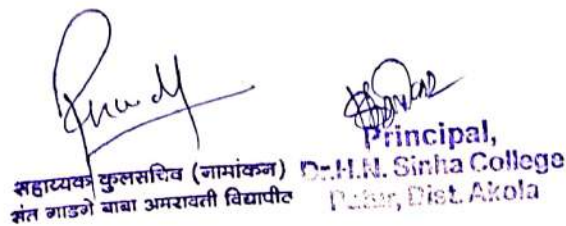 सहाय्यक कुलसचिव (नामांकन)
संत गाडगे बाबा अमरावती विद्यापीठ
Principal,
Dr.H.N. Sinha College
Patur, Dist. Akola